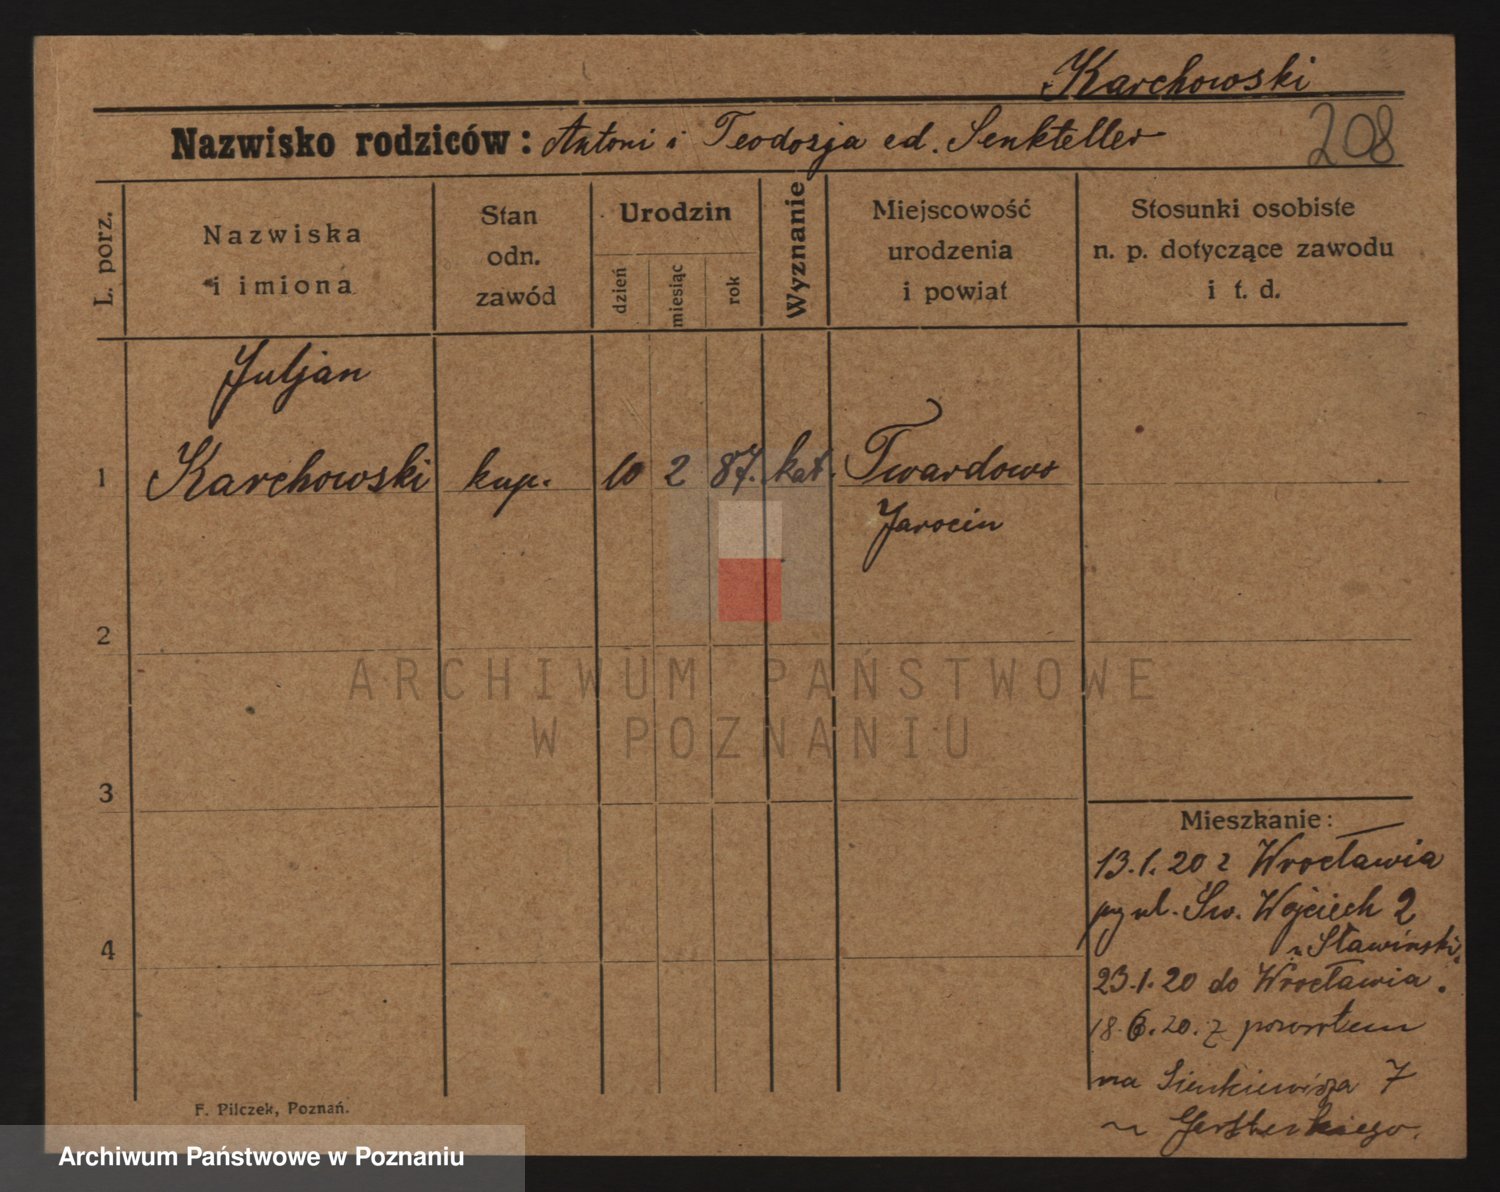 Karchowski
Nazwisko rodziców: Antoni i Teodozja ed. Senkteller
208
L. porz.
Nazwiska
i imiona
Stan
odn.
zawód
Urodzin
dzień
miesiąc
rok
Wyznanie
Miejscowość
urodzenia
i powiat
Stosunki osobiste
n. p. dotyczące zawodu
i t. d.
Juljan
1 Karchowski kup. 10 2 87. kat. Twardowo
Jarocin
2
3
4
Mieszkanie:
13.1.20 z Wrocławia
ul. Św. Wojciech 2
u Sławiński.
23.1.20 do Wrocławia.
18.6.20. z powrotem
na Sienkiewicza 7
u
F. Pilczek, Poznań.
ARCHIWUM PAŃSTWOWE
W POZNANIU
Archiwum Państwowe w Poznaniu